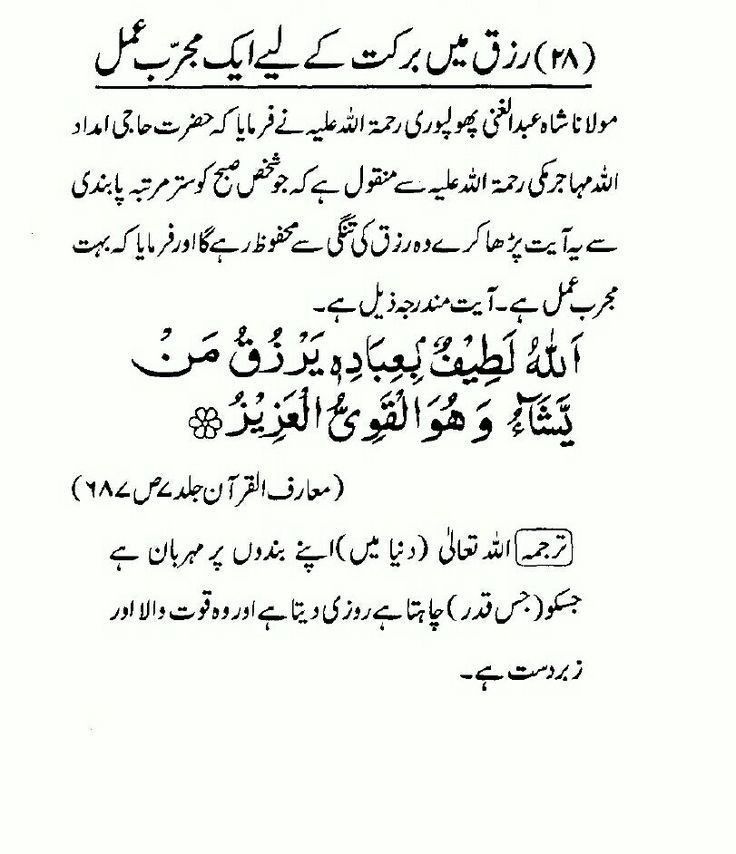 (۲۸) رزق میں برکت کے لیے ایک مجرّب عمل
مولانا شاہ عبدالغنی پھولپوری رحمۃ اللہ علیہ نے فرمایا کہ حضرت حاجی امداد
اللہ مہاجر مکی رحمۃ اللہ علیہ سے منقول ہے کہ جو شخص صبح کو ستر مرتبہ پابندی
سے یہ آیت پڑھا کرے وہ رزق کی تنگی سے محفوظ رہے گا اور فرمایا کہ بہت
مجرب عمل ہے۔ آیت مندرجہ ذیل ہے۔
اَللّٰهُ لَطِيْفٌۢ بِعِبَادِهٖ يَرْزُقُ مَنْ
يَّشَآءُ وَهُوَ الْقَوِىُّ الْعَزِيْزُ
(معارف القرآن جلد ۷ ص ۶۸۷)
ترجمہ اللہ تعالیٰ (دنیا میں) اپنے بندوں پر مہربان ہے
جسکو (جس قدر) چاہتا ہے روزی دیتا ہے اور وہ قوت والا اور
زبردست ہے۔